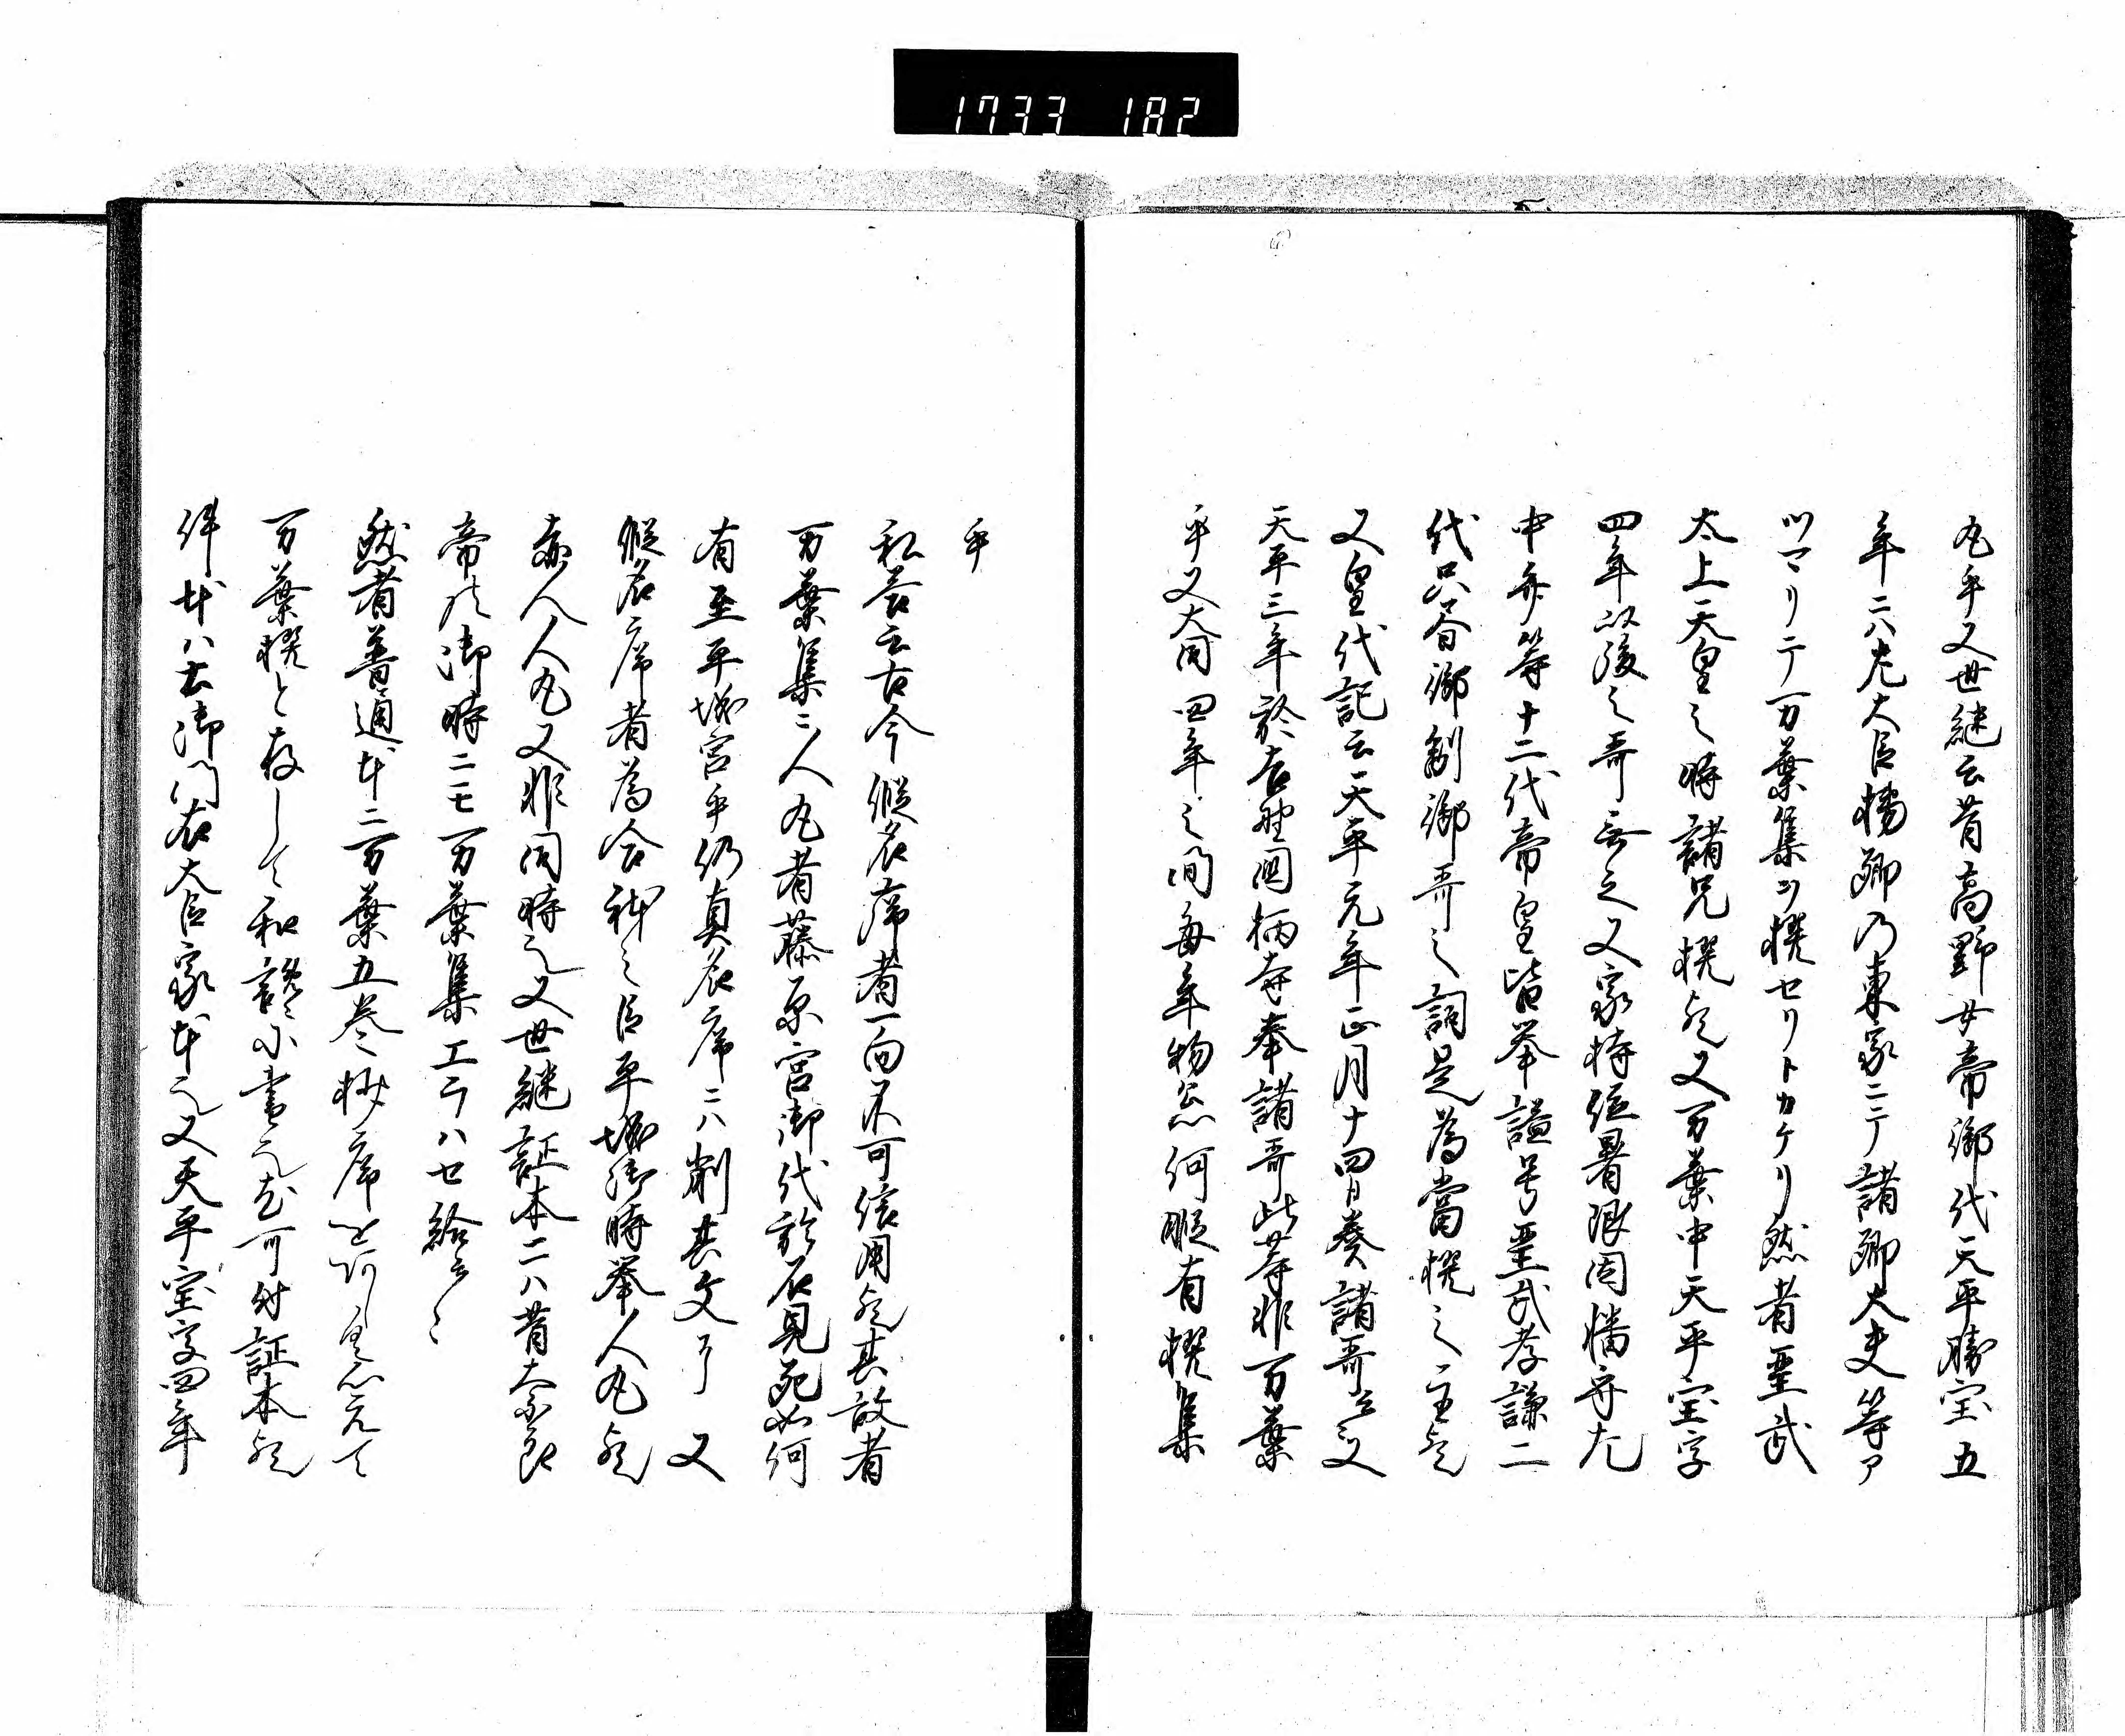 1733 182
丸乎又世継云昔高野女帝御代天平勝宝五
年ニハ左大臣橘卿乃東家ニテ諸卿大夫等ア
ツマリテ万葉集ヲ撰セリトカケリ然者聖武
太上天皇之時諸兄撰歟又万葉中天平宝字
四年以後之哥無之又家持任署限因幡守尤
中奈等十二代帝皇皆挙謚号聖武孝謙二
代只者御製御哥之詞是為當撰之主歟
又皇代記云天平元年正月十四日奏諸哥云々又
天平三年於吉野国栖寺奉諸哥此等非万葉
乎又大同四年之間毎年物忩何暇有撰集
乎
私答云古今仮名序者一向不可信用歟其故者
万葉集ニ人丸者藤原宮御代於石見死如何
有至平城宮乎仍真名序ニハ削其文了 又
仮名序者為合躰之臣平城御時挙人丸歟
赤人人丸又非同時也又世継証本ニハ昔奈良
帝乃御時ニモ万葉集エラハセ給云々
然者普通本ニ万葉五巻抄序と
万葉撰と存して和讒に書也尤可付証本歟
件本ハ土御門右大臣家本也又天平宝字四年